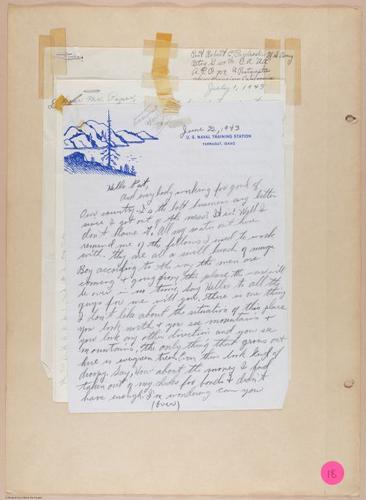 Pvt Robert C.
Btry G CA AA
A.P.O.
July 1, 1943
Dear Mr.
June 23, 1943
U. S. NAVAL TRAINING STATION
FARRAGUT, IDAHO
Hello Pat,
And everybody working for good of
Our country. Is the bolt business any better
since I got out of the mess? Well I
don't blame it. All my mates out here
remind me of the fellows I used to work
with. They are all a swell bunch of mugs.
Boy according to the way the men are
coming & going from this place, the war will
be over in no time. Say Hello to all the
gang for me will you. There is one thing
I don't like about the situation of this place
you look north & you see mountains &
you look any other direction and you see
mountains, the only thing that grows out
here is evergreen trees, even they look kind of
droopy. Say, How about the money I had
taken out of my checks for bonds & didn't
have enough. I'm wondering can you
(over)
18